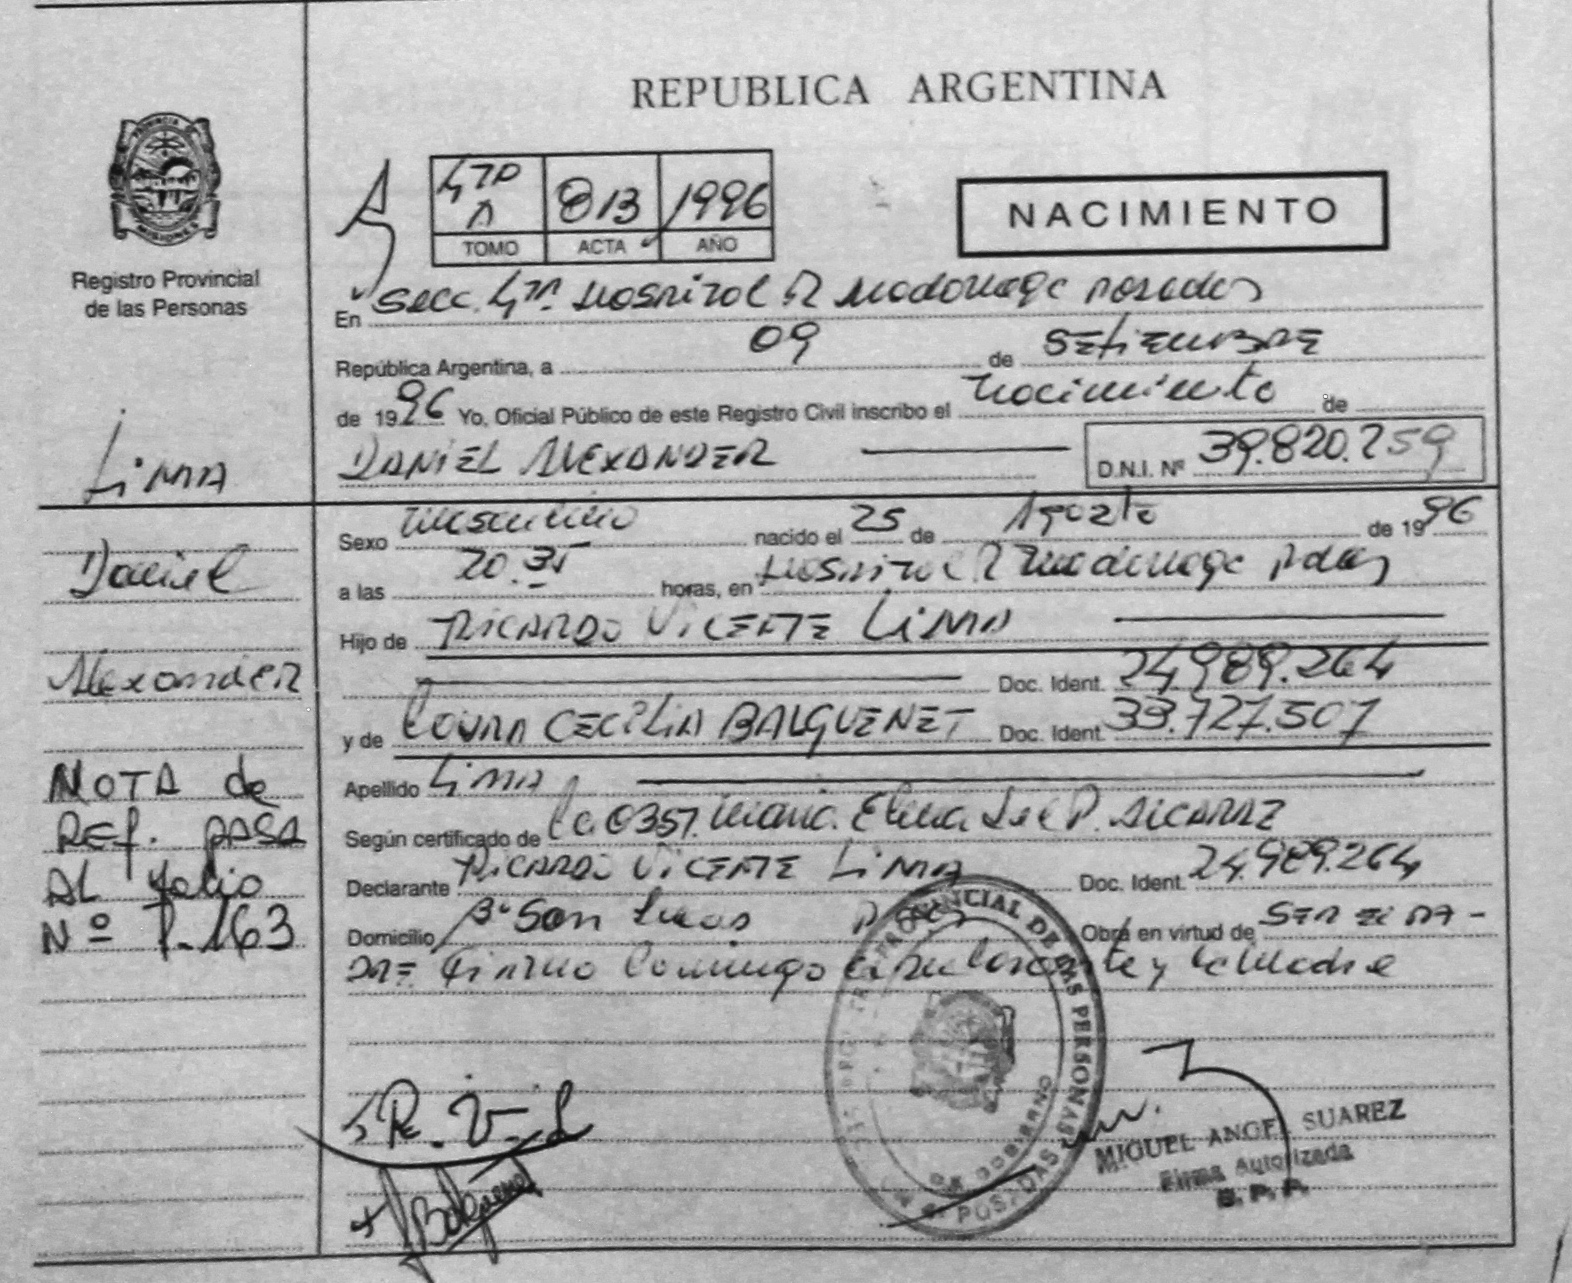 REPUBLICA ARGENTINA
PROVINCIA DE
MISIONES
Registro Provincial
de las Personas
4TO A 013 1996
TOMO ACTA AÑO
NACIMIENTO
En Secc. 4ta. Hospital R Madariaga Posadas
República Argentina, a 09 de SEtiEMBRE
de 1996 Yo, Oficial Público de este Registro Civil inscribo el Nacimiento de
DANIEL ALEXANDER
D.N.I. Nº 39.820.259
Lima
Daniel
Alexander
NOTA de
REf. PASA
AL folio
Nº P-163
Sexo masculino nacido el 25 de Agosto de 1996
a las 20.35 horas, en Hospital R Madariaga Pdas
Hijo de RICARDO VICENTE LiMA
Doc. Ident. 24.989.264
y de CECILIA BALQUENET Doc. Ident. 33.727.507
Apellido LiMA
Según certificado de Maria Elena ALCARAZ
Declarante RICARDO VICENTE LiMA Doc. Ident. 24.989.264
Domicilio Bº San Lucas Pdas Obra en virtud de SER EL PA-
DRE. Firman Conmigo el Declarante y la Madre
R. V. L
PROVINCIAL DE LAS PERSONAS
POSADAS
GOBIERNO
MIGUEL ANGEL SUAREZ
Firma Autorizada